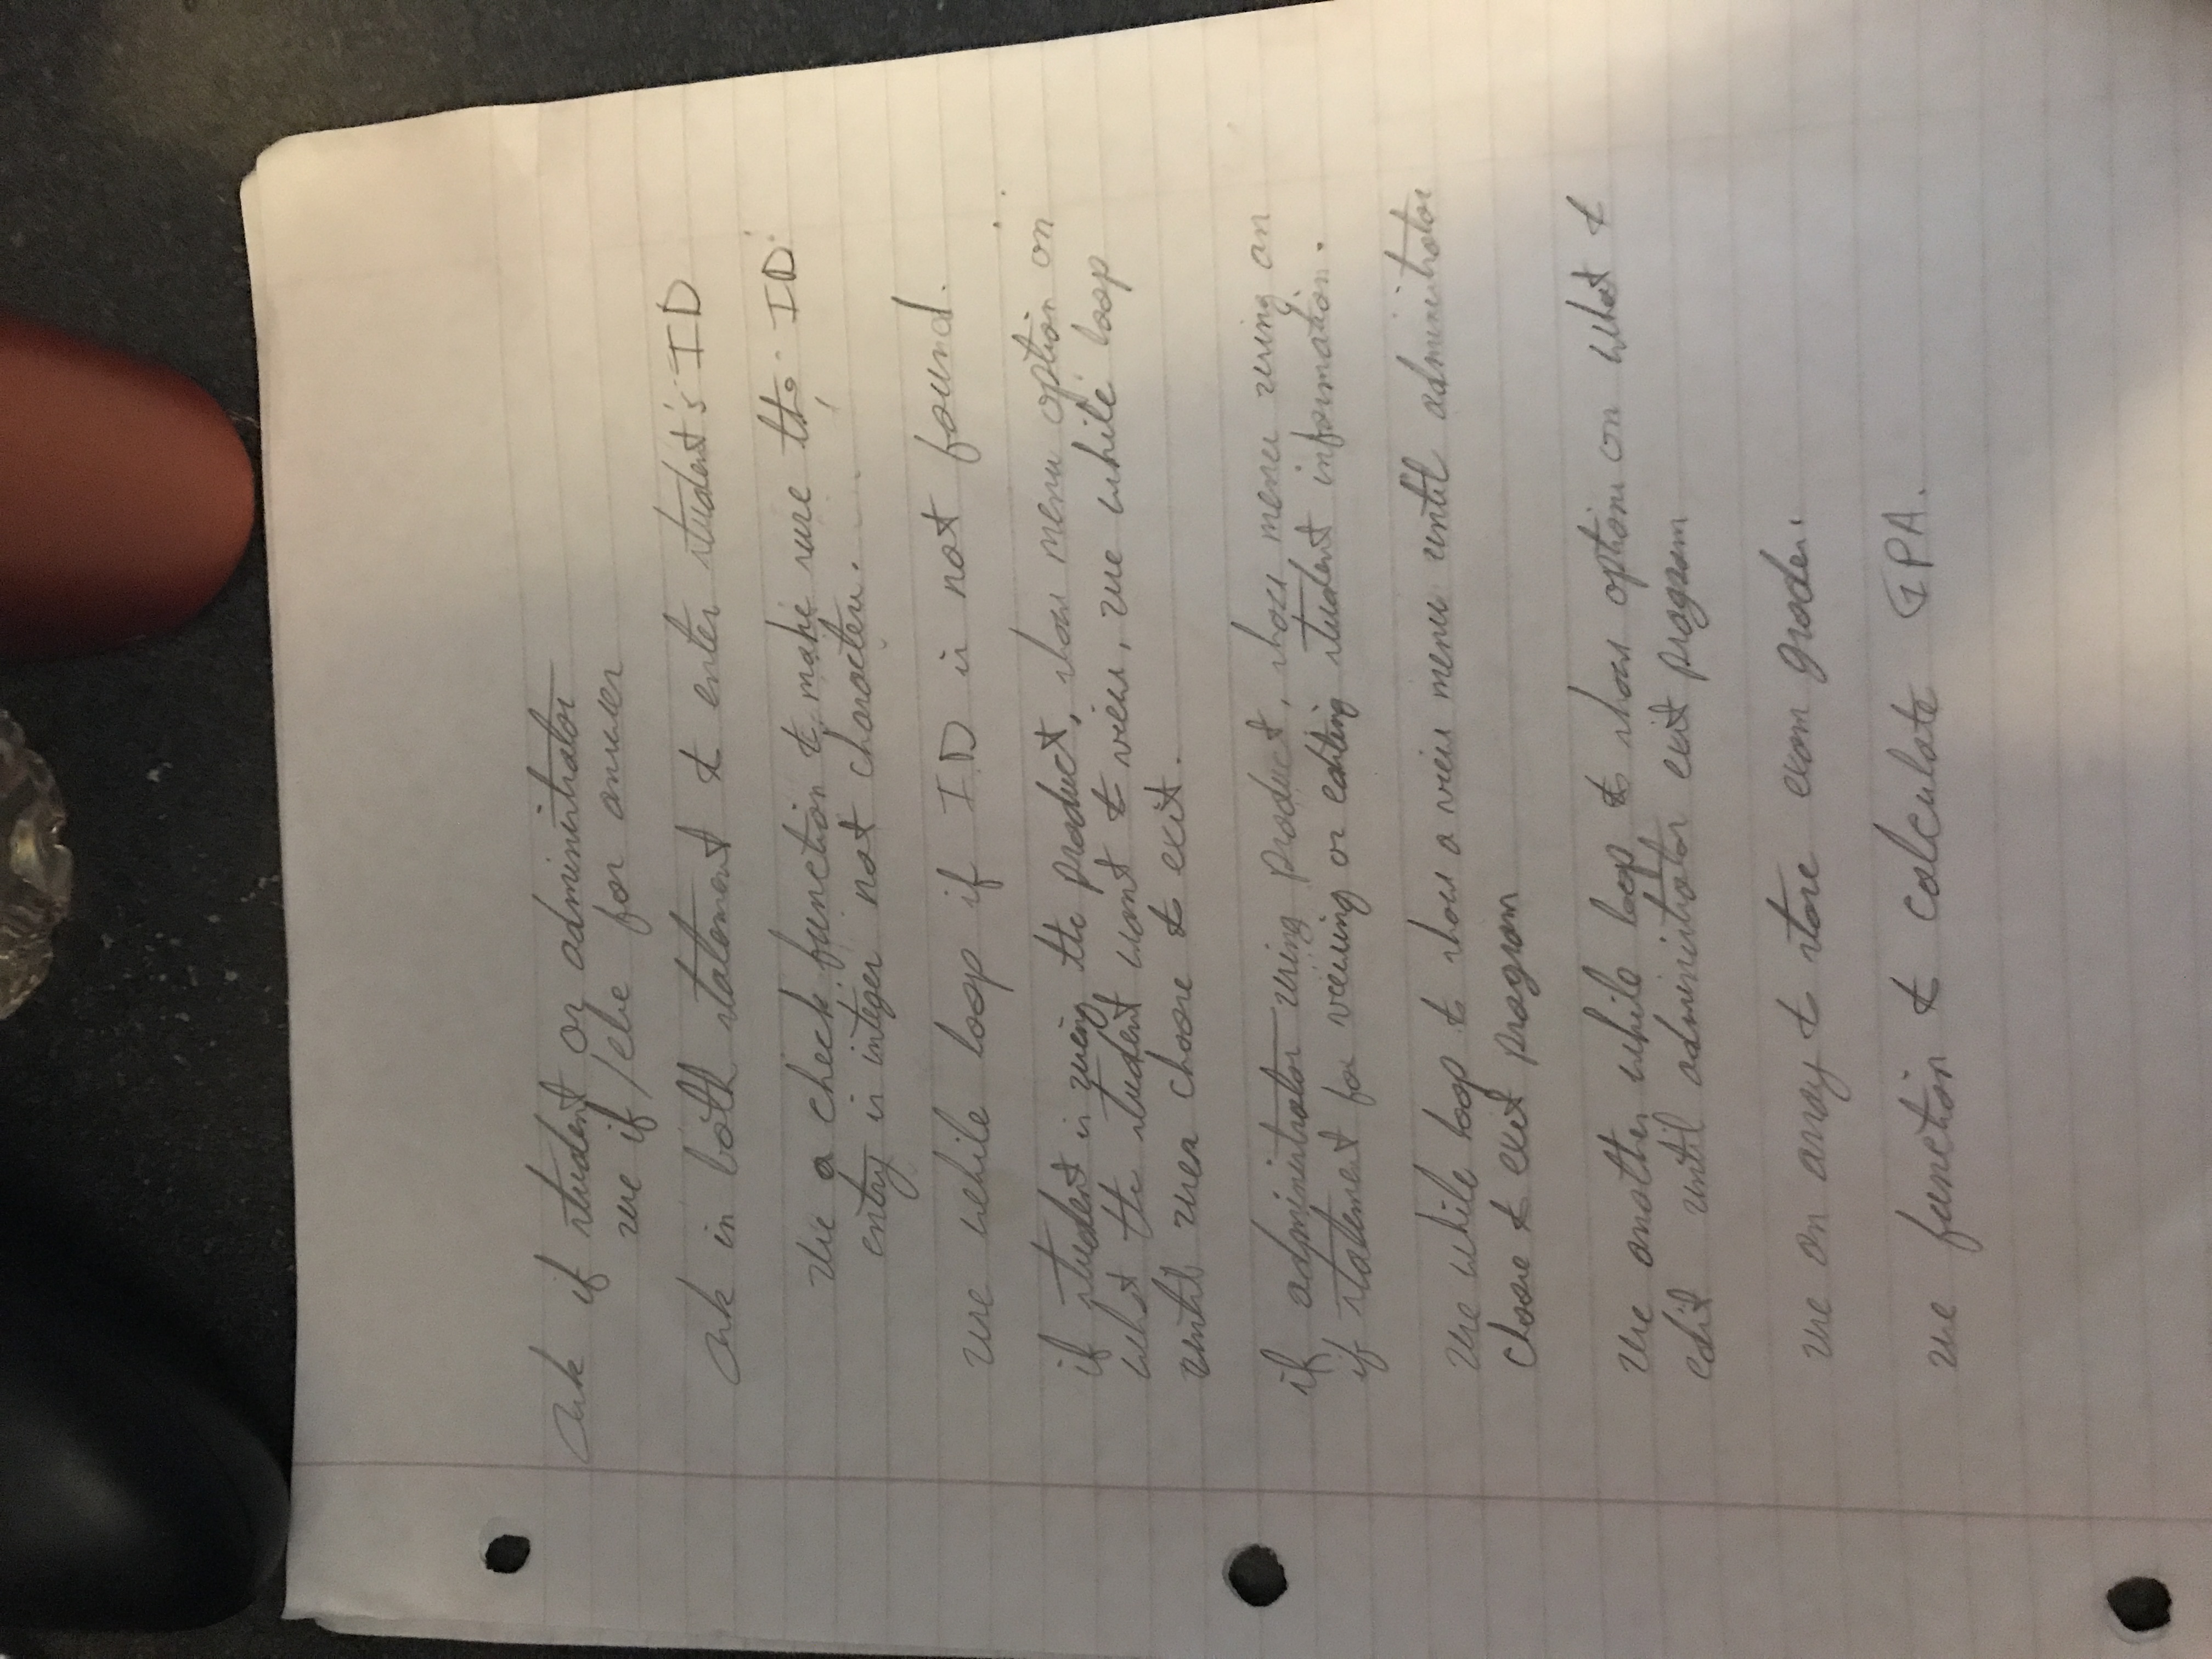 Ask if student or administrator
use if/else for answer
Ask in both statement to enter student's ID
Use a check function to make sure the ID
entry is integer not characters.
use while loop if ID is not found.
if student is using the product, show menu option on
what the student want to view, use while loop
until user choose to exit.
if administrator using product, show menu using an
if statement for viewing or editing student information.
use while loop to show a view menu until administrator
choose to exit program
use another while loop to show options on what to
edit until administrator exit program
use an array to store exam grades.
use function to calculate GPA.